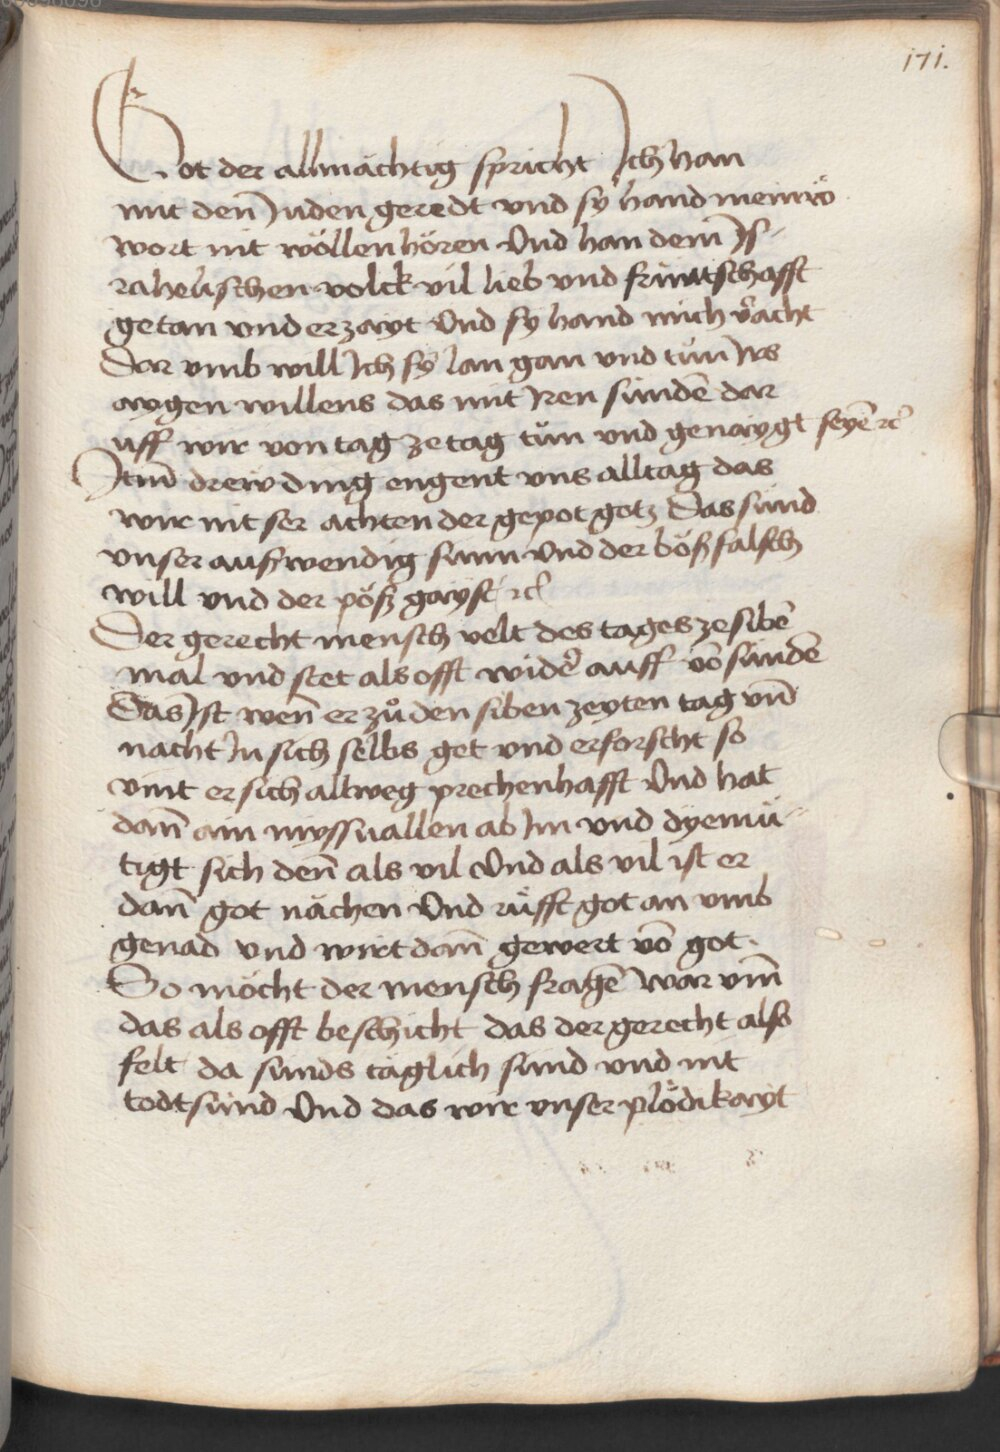 171.
Got der allmächtig spricht Ich han
mit den̄ Juden geredt vnd sy hand meine
wort nit wöllen hören Vnd han dem Js-
rahelischen volck vil lieb vnd früntschafft
getan vnd erzaygt Vnd sy hand mich v̄acht
Dar vmb will Ich sy lan gan vnd tůn Irs
aygen willens das mit Iren sünden̄ dar
uff wir von tag ze tag tůn vnd genaygt seyen̄ ꝛc̄
Itm̄ drew ding engent vns alltag das
wir nit ser achten der gepot gotz Das sind
vnser aufswendig sinn Vnd der böß falsch
will vnd der pöß gayst ꝛc̄
Der gerecht mensch velt des tages ze sibē
mal vnd stet als offt wider̄ auff vō sündē
Das Ist wen̄ er zů den siben zeyten tag vn̄
nacht In sich selbs get vnd erforscht so
vint er sich allweg prechenhafft Vnd hat
dan̄ ain myssuallen ab Im vnd dyemü-
tigt sich den̄ als vil Vnd als vil ist er
dan̄ got nächen Vnd rüfft got an vmb
genad vnd wirt dan̄ gewert vō got.
So möcht der mensch fragē war vm̄
das als offt beschicht das der gerecht also
felt da sinds täglich sünd vnd nit
todtsünd Vnd das wir vnser plödikayt